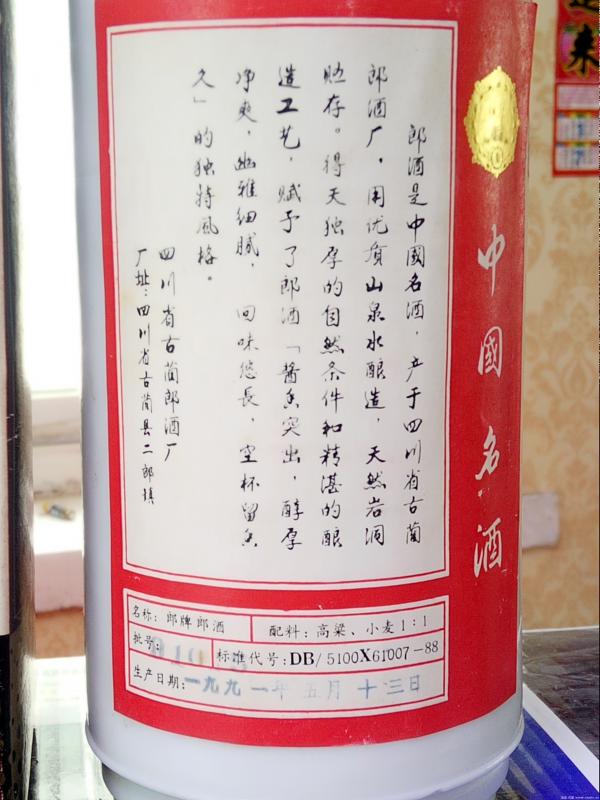 中國名酒
郎酒是中國名酒，产于四川省古蔺
郎酒厂，用优质山泉水酿造，天然岩洞
贮存。得天独厚的自然条件和精湛的酿
造工艺，赋予了郎酒「醬香突出，醇厚
净爽，幽雅细腻，回味悠長，空杯留香
久」的独特風格。
四川省古蔺郎酒厂
厂址：四川省古蔺县二郎镇
名称：郎牌郎酒 配料：高粱、小麦1：1
批号： 标准代号：DB/5100X61007-88
生产日期：一九九一年五月十三日
来